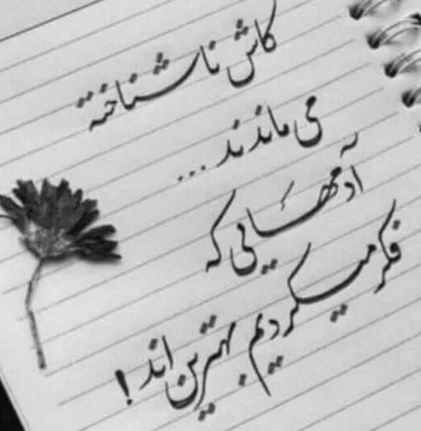 کاش ناشناخته
می ماندند...
آدمهایی که
فکر میکردیم بهترین اند!